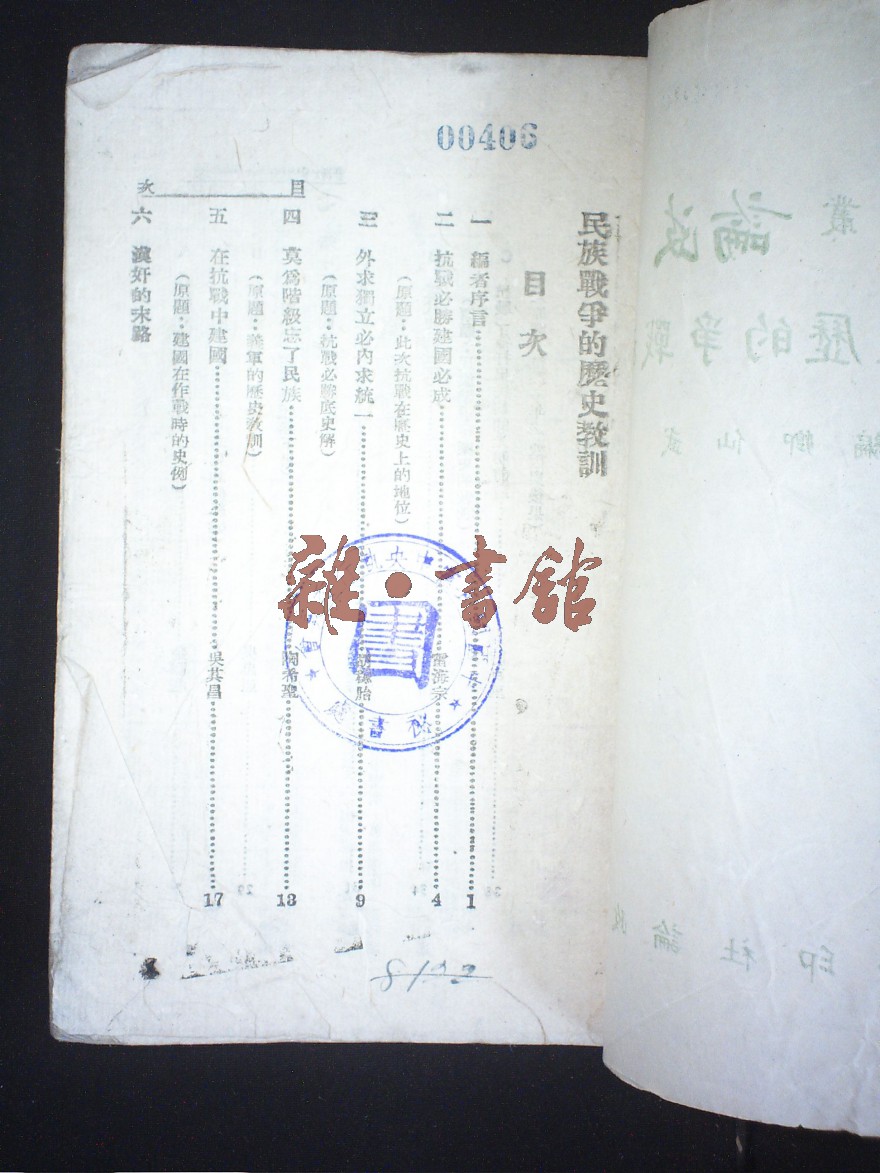 00406
民族戰爭的歷史教訓
目次
一 編者序言 1
二 抗戰必勝建國必成 雷海宗 4
（原題：此次抗戰在歷史上的地位）
三 外求獨立必內求統一 9
（原題：抗戰必勝底史解）
四 莫爲階級忘了民族 陶希聖 13
（原題：義軍的歷史教訓）
五 在抗戰中建國 吳其昌 17
（原題：建國在作戰時的史例）
六 漢奸的末路
目次
雜·書館
書